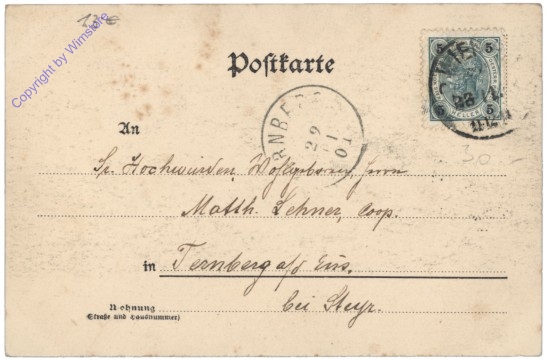 13 €
Copyright by Wimstore
Postkarte
5 5
HELLER
28
5
NBE
29
11
01
30.-
An
Sr. Hochwürden, Wohlgeboren, Herrn
Matth. Lehner, Coop.
in Ternberg a/d Ens.
bei Steyr.
Wohnung
(Straße und Hausnummer)